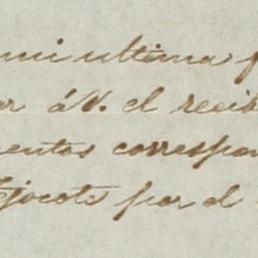 mi ultima
ar á V. el recib
mentos correspon
Tejocote por el